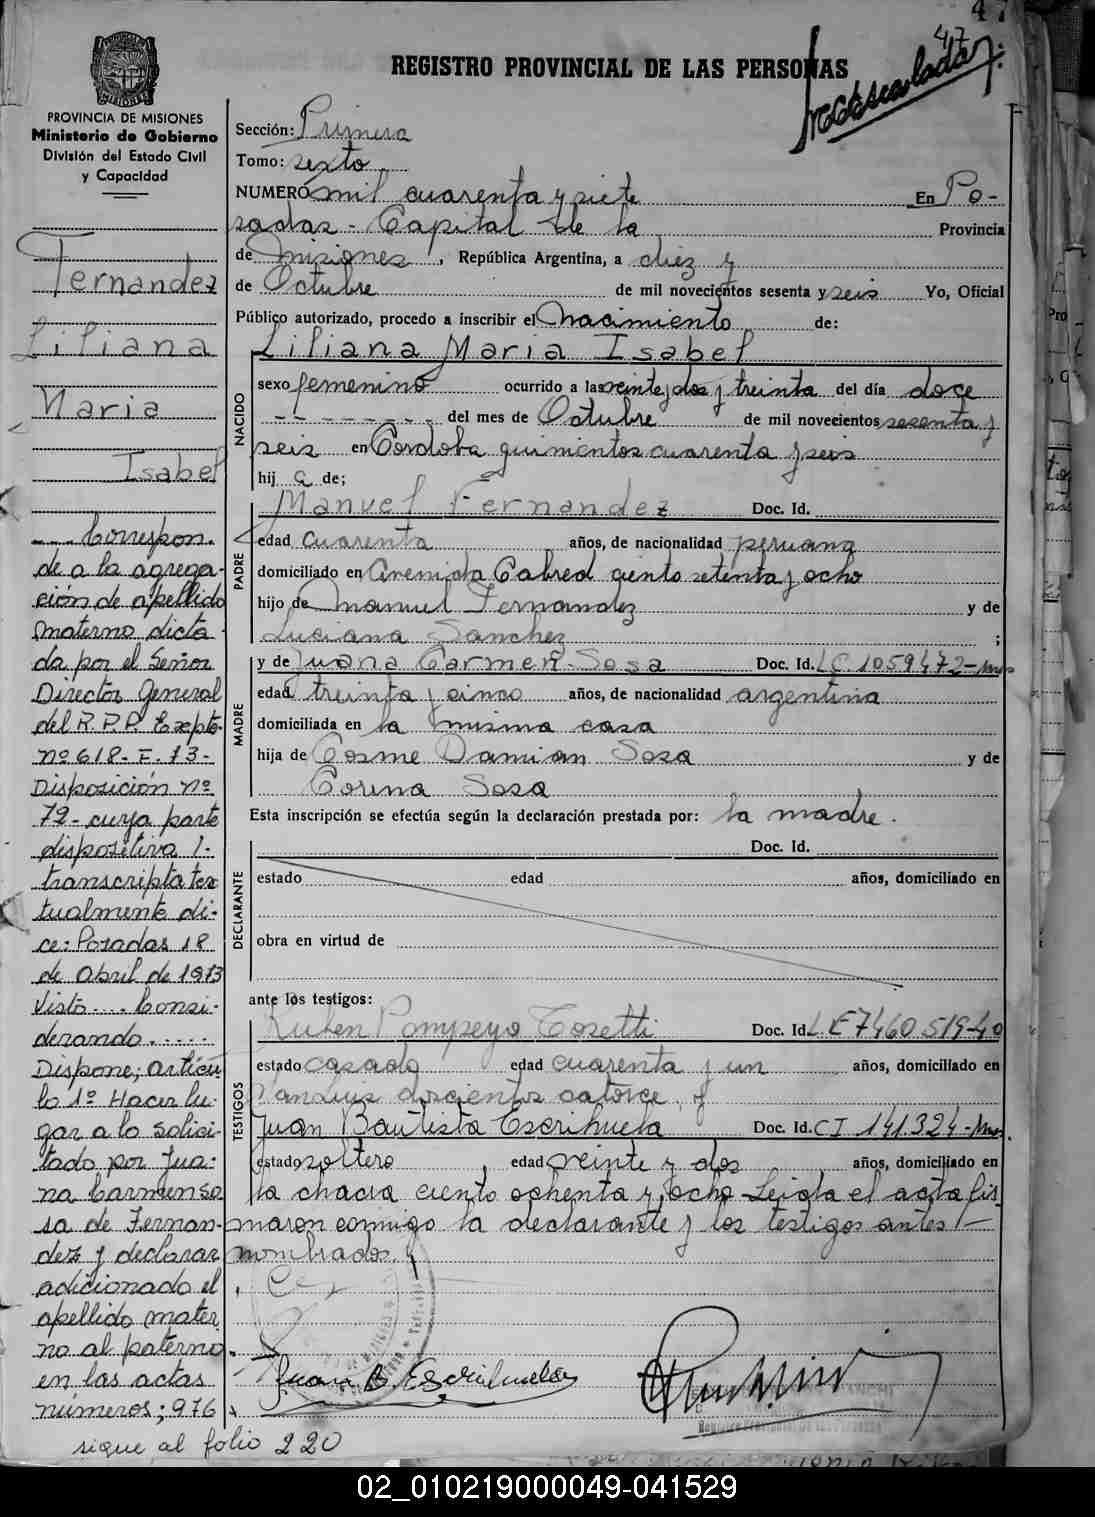 47
47
REGISTRO PROVINCIAL DE LAS PERSONAS
PROVINCIA DE MISIONES
Ministerio de Gobierno
División del Estado Civil
y Capacidad
Fernandez
Liliana
Maria
Isabel
---- Correspon-
de a la agrega-
ción de apellido
materno dicta-
da por el Señor
Director General
del R.P.P. Expte.
nº 618-F-73-
Disposición nº
72- cuya parte
dispositiva
transcripta tex
tualmente di-
ce: Posadas 18
de Abril de 1973
Visto.... Consi-
derando.....
Dispone; artícu
lo 1º Hacer lu-
gar a lo solici-
tado por Jua-
na Carmen So
sa de Fernan-
dez y declarar
adicionado el
apellido mater
no al paterno
en las actas
números; 976
sique al folio 220
Sección: Primera
Tomo: sexto
NUMERO mil cuarenta y siete En Po-
sadas - Capital de la Provincia
de Misiones, República Argentina, a diez y
de Octubre de mil novecientos sesenta y seis Yo, Oficial
Público autorizado, procedo a inscribir el Nacimiento de:
Liliana Maria Isabel
NACIDO
sexo femenino ocurrido a las veinte y dos y treinta del día doce
-------- del mes de Octubre de mil novecientos sesenta y
seis en Cordoba quinientos cuarenta y seis
hij a de;
PADRE
Manuel Fernandez Doc. Id.
edad cuarenta años, de nacionalidad peruana
domiciliado en Avenida Cabred ciento setenta y ocho
hijo de Manuel Fernandez y de
Luciana Sanchez ;
MADRE
y de Juana Carmen Sosa Doc. Id. LC. 1059472-Mnes
edad treinta y cinco años, de nacionalidad argentina
domiciliada en la misma casa
hija de Cosme Damian Sosa y de
Corina Sosa
Esta inscripción se efectúa según la declaración prestada por: la madre.
DECLARANTE
Doc. Id.
estado edad años, domiciliado en
obra en virtud de
ante los testigos:
TESTIGOS
Ruben Pompeyo Cosetti Doc. Id. L.E 7460.519-40
estado casado edad cuarenta y un años, domiciliado en
San Luis doscientos catorce, y
Juan Bautista Escrihuela Doc. Id. CI 141.324-Mnes.
estado soltero, edad veinte y dos años, domiciliado en
la chacra ciento ochenta y ocho - Leida el acta fir
maron conmigo la declarante y los testigos antes -
nombrados.
Juan B. Escrihuela
02_010219000049-041529